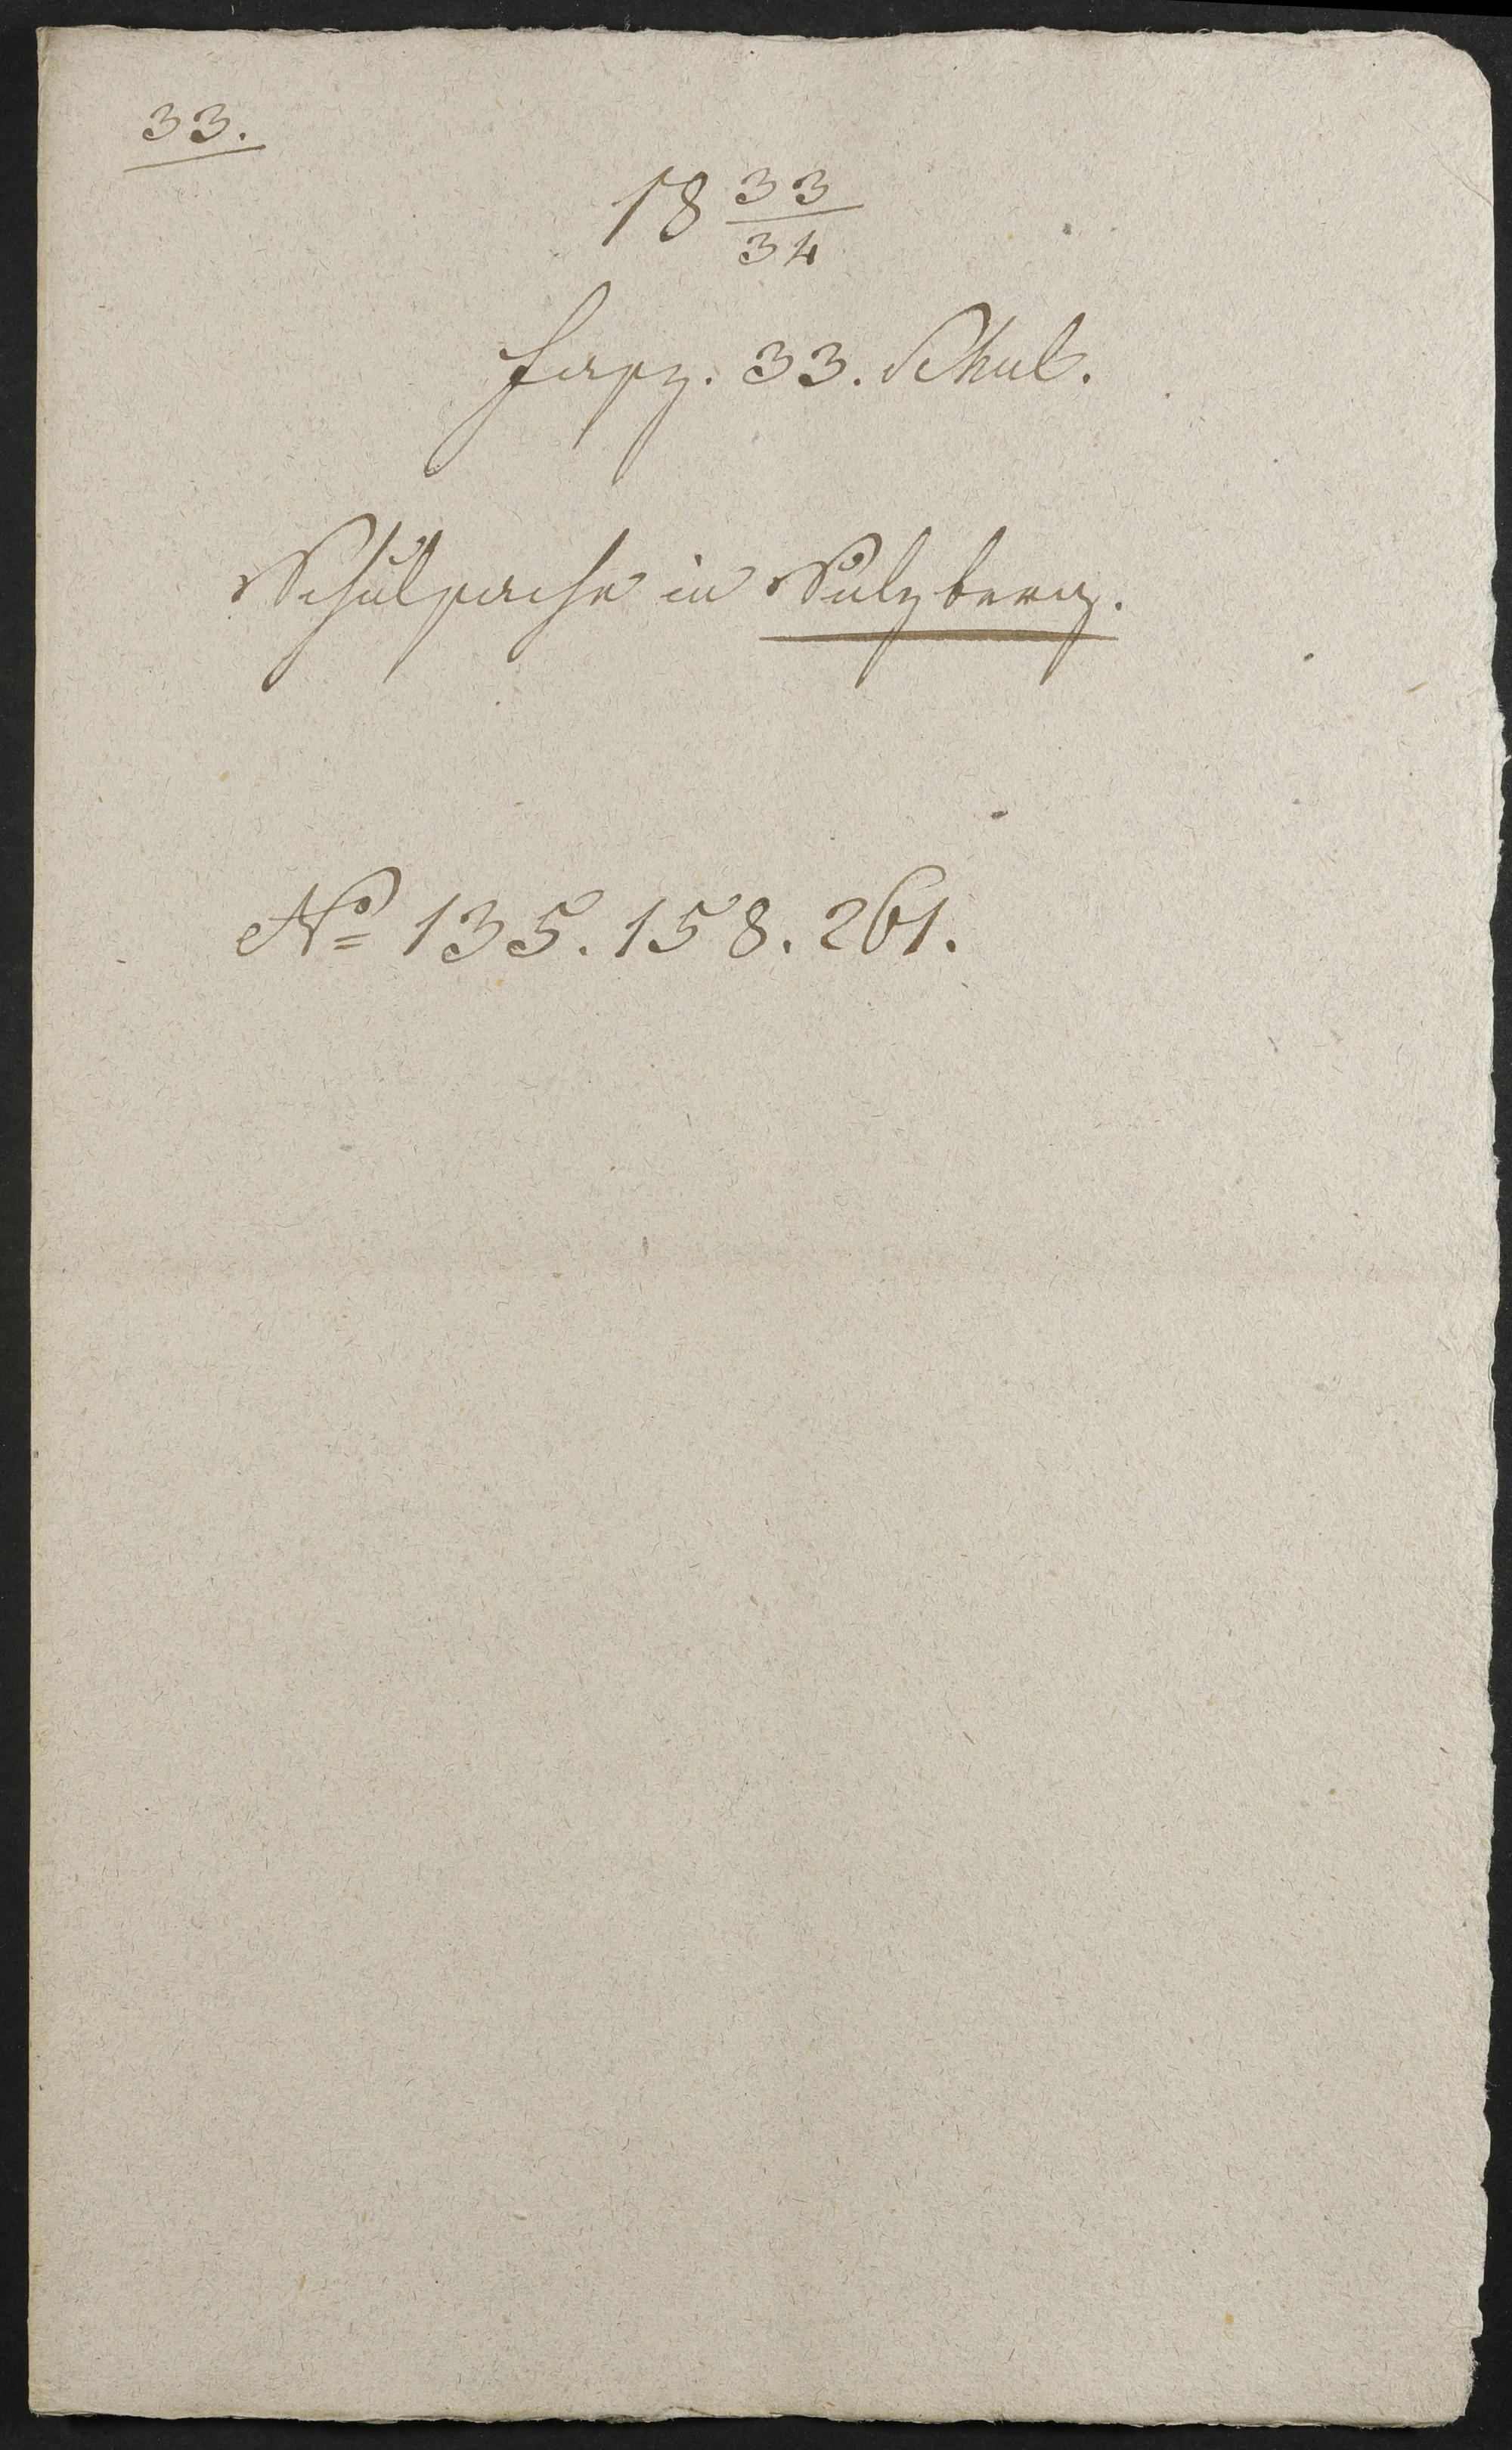 33.
18 33/34
Fasz. 33. Schul.
Schulsache in Sulzberg.
No 135. 158. 261.